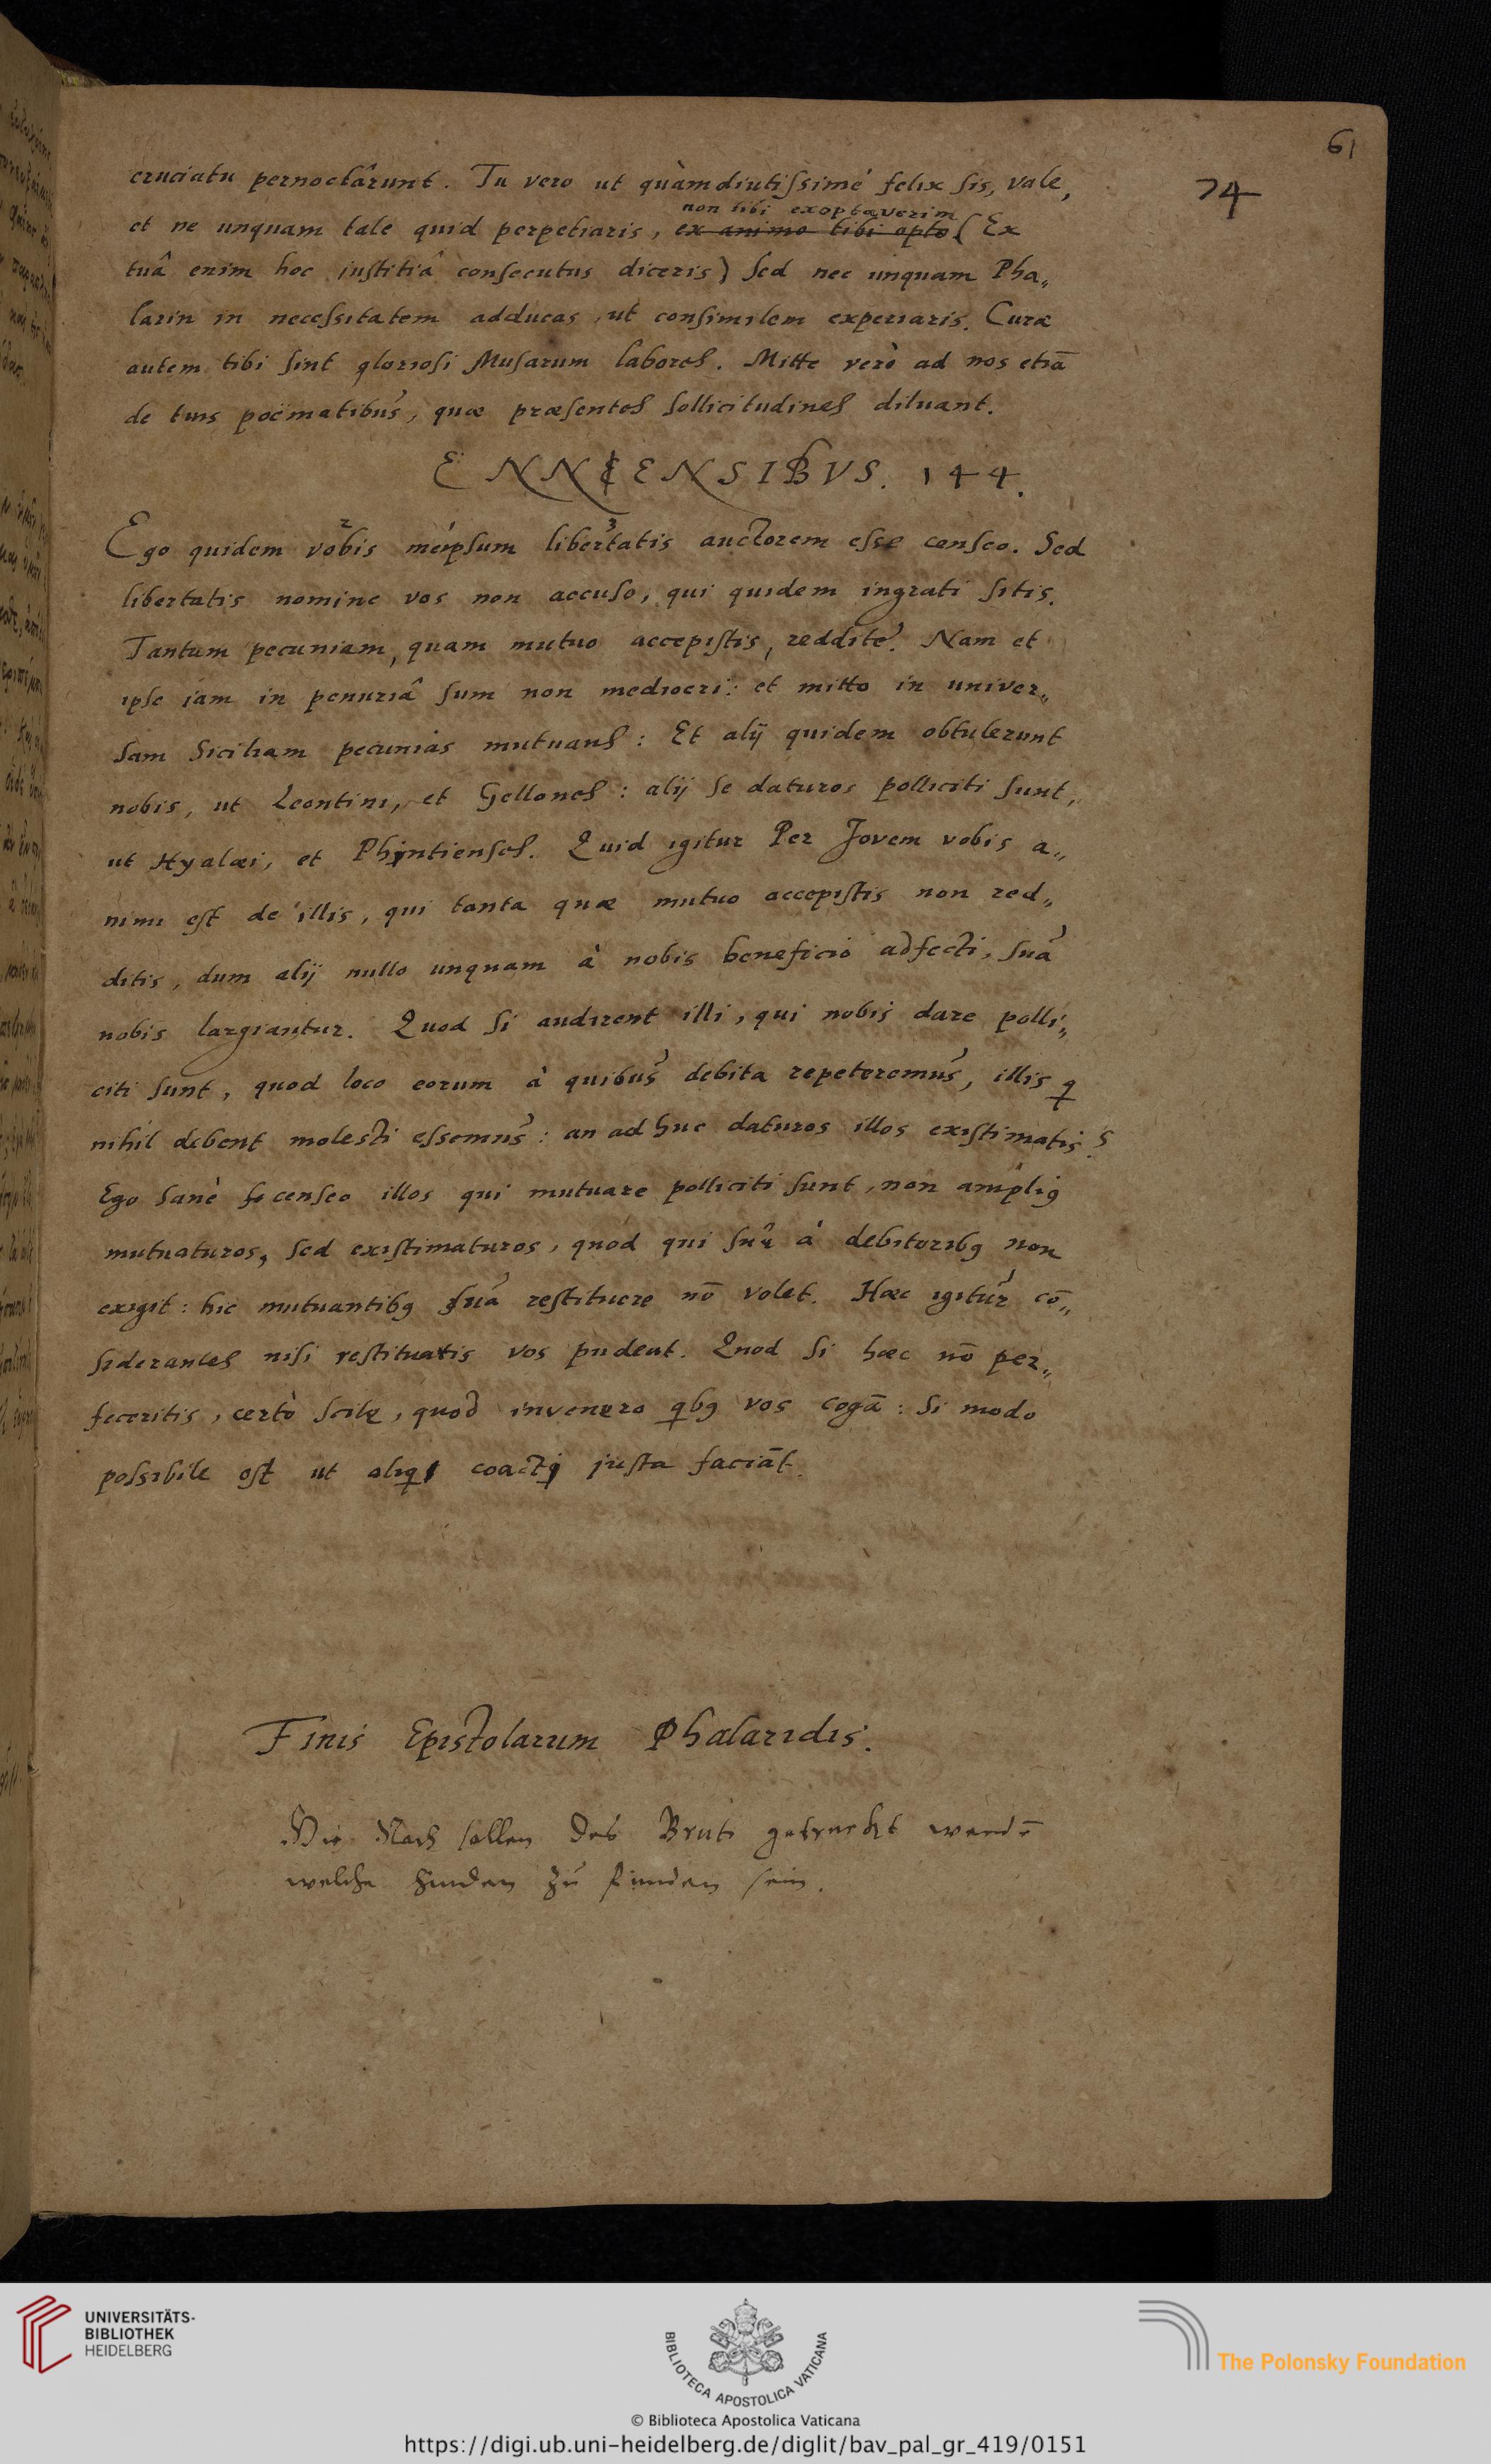 61
74
cruciatu pernoctârunt. Tu vero ut quàmdiutissimé felix sis, vale,
non tibi exoptaverim
et ne unquam tale quid perpetiaris, ex animo tibi opto (Ex
tuâ enim hoc justitiâ consecutus diceris) sed nec unquam Pha„
larin in necessitatem adducas, ut consimilem experiaris. Curæ
autem tibi sint gloriosi Musarum labores. Mitte verò ad nos etiā
de tuis poëmatibus, quæ præsentes sollicitudines diluant.
ENNENSIBVS. 144.
2 3
Ego quidem vobis meipsum libertatis auctorem esse censeo. Sed
libertatis nomine vos non accuso, qui quidem ingrati sitis.
Tantum pecuniam, quam mutuo accepistis, reddite. Nam et
ipse jam in penuriâ sum non mediocri: et mitto in univer„
sam Siciliam pecunias mutuans: Et alij quidem obtulerunt
nobis, ut Leontini, et Gellones: alij se daturos polliciti sunt,
ut Hyalæi, et Phintienses. Quid igitur Per Jovem vobis a„
nimi est de illis, qui tanta quæ mutuo accepistis non red„
ditis, dum alij nullo unquam à nobis beneficio adfecti, sua
nobis largiantur. Quod si audirent illi, qui nobis dare polli„
citi sunt, quod loco eorum à quibus debita repeteremus, illis q
nihil debent molesti essemus: an adhuc daturos illos existimatis?
Ego sanè censeo illos qui mutuare polliciti sunt, non ampli9
mutuaturos, sed existimaturos, quòd qui suū à debitorib9 non
exigit: hic mutuantib9 sua restituere nō volet. Hæc igitur cō„
siderantes nisi restituatis vos pudeat. Quod si hæc nō per„
feceritis, certò scite, quod invenero qb9 vos cogā: si modo
possibile est ut aliqi coacti justa faciāt.
Finis Epistolarum Phalaridis.
Hie Nach sollen des Bruti getruckt werdē
welche hinden zu finden sein.
UNIVERSITÄTS-
BIBLIOTHEK
HEIDELBERG
BIBLIOTECA APOSTOLICA VATICANA
The Polonsky Foundation
© Biblioteca Apostolica Vaticana
https://digi.ub.uni-heidelberg.de/diglit/bav_pal_gr_419/0151